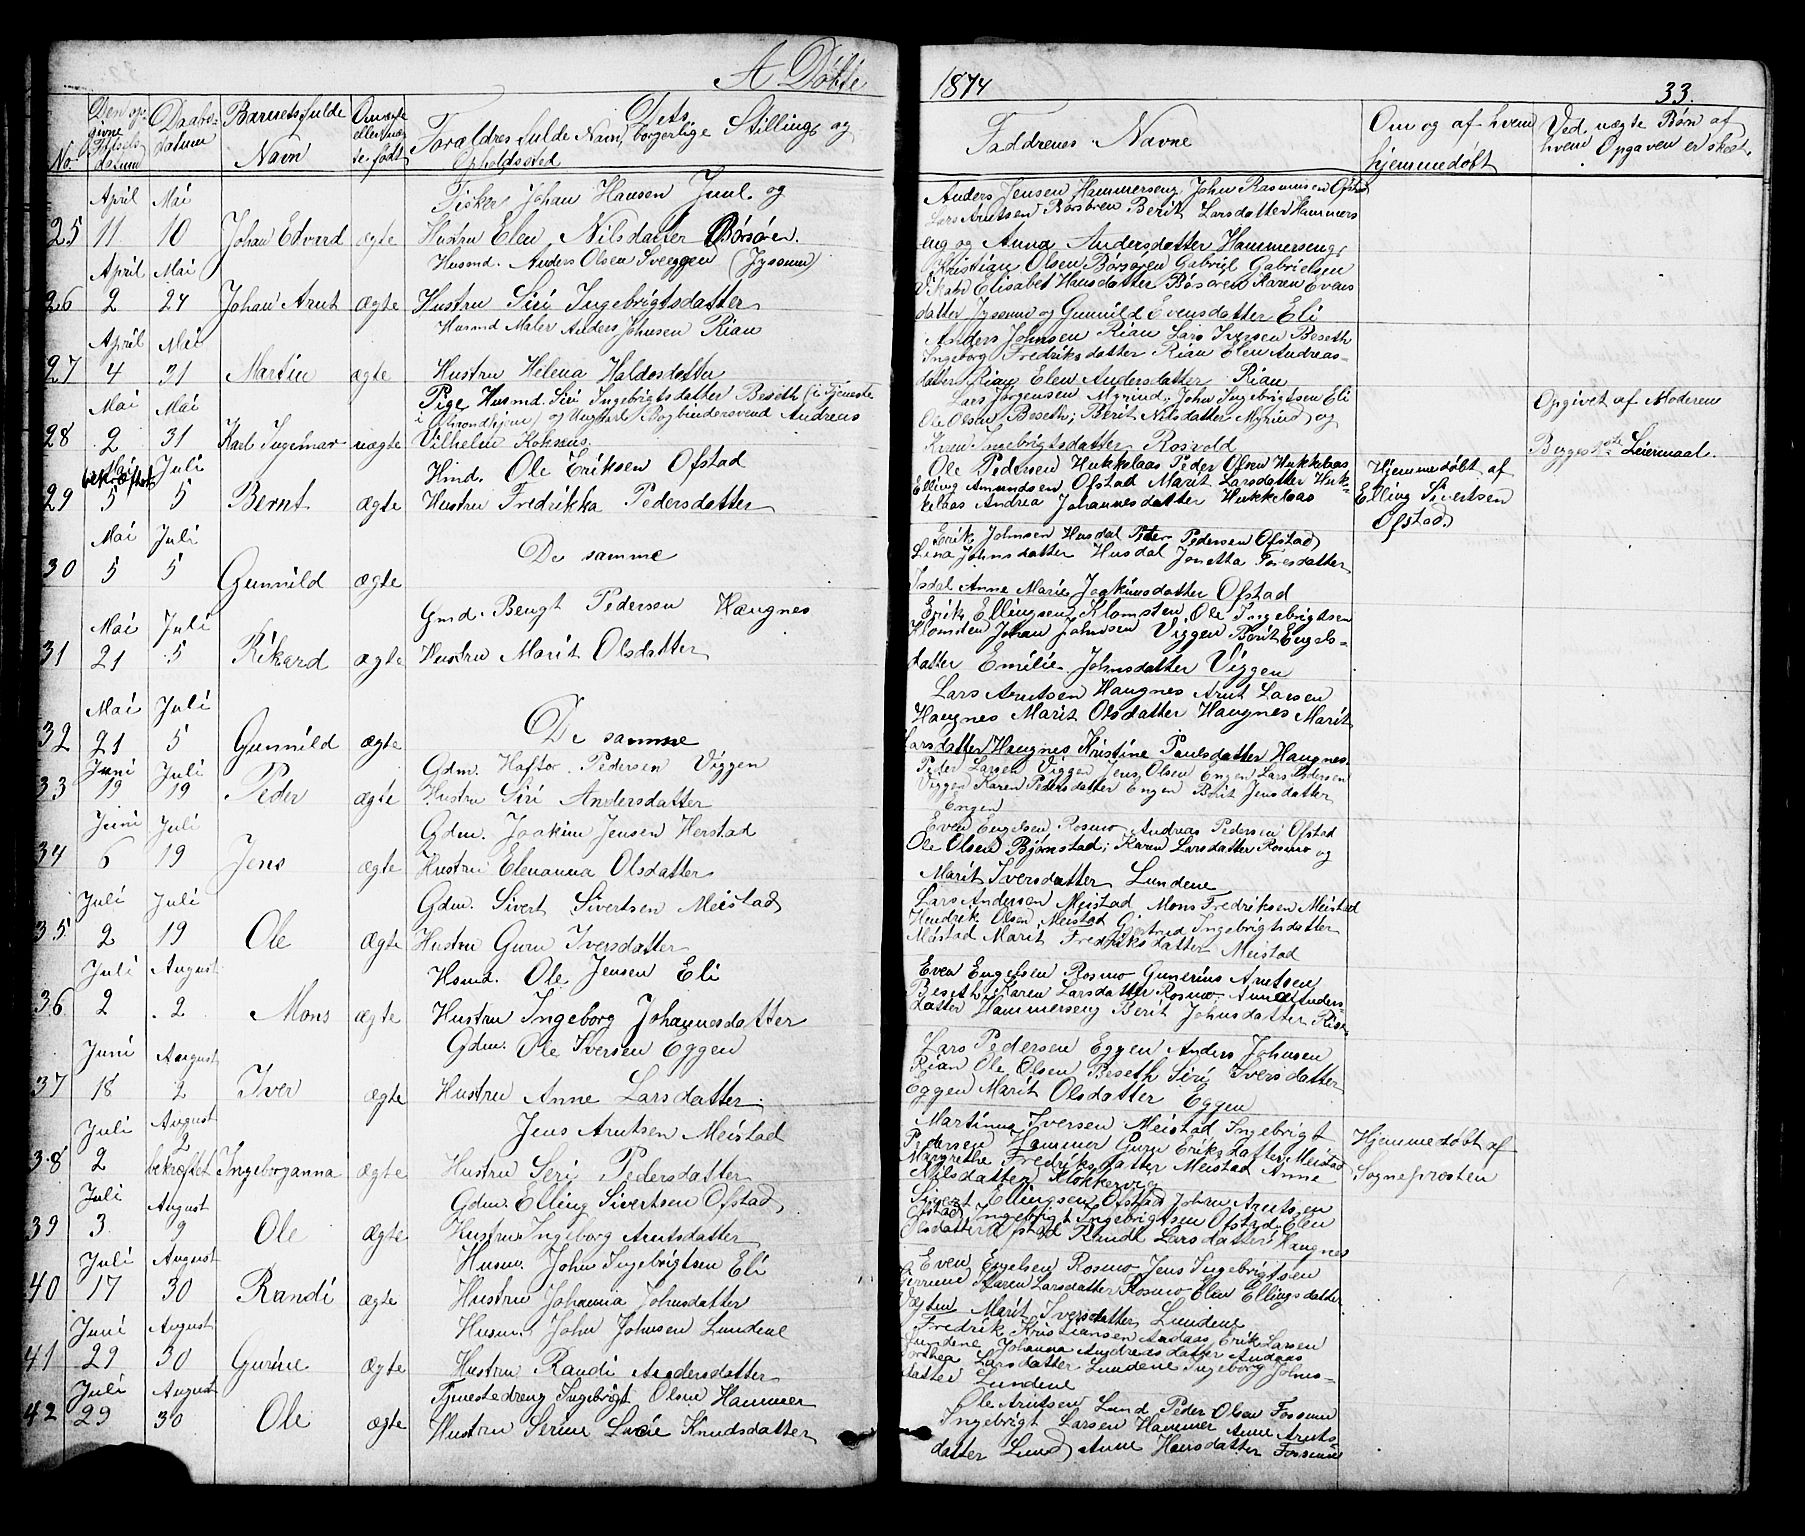 A Døbte
1874
33.
No.
Den opgivne Fødselsdatum
Daabsdatum
Barnets fulde Navn
Om ægte eller uægte født
Forældres fulde Navn, Dets borgerlige Stilling og Opholdssted
Faddrenes Navne
Om og af hvem hjemmedøbt
Ved uægte Børn af hvem Opgaven er skeet.
25 April 11 Mai 10 Johan Edvard ægte
Fisker Johan Hansen Juul og
Hustru Elen Nilsdatter Børsøren.
Anders Jensen Hammerseng John Rasmusen Ofstad
Lars Arntsen Børsøren Berit Larsdatter Hammers
eng og Anna Andersdatter Hammerseng
26 April 2 Mai 24 Johan Arnt ægte
Husmd. Anders Olsen Sveeggen (Jyssum)
Hustru Siri Ingebrigtsdatter
Kristian Olsen Børsøren Gabriel Gabrielsen
Elisabet Hansdatter Børsøren Karen Evens
datter Jyssum og Gunnild Evensdatter Eli
27 April 4 Mai 31 Martin ægte
Husmd Maler Anders Johnsen Rian
Hustru Helena Haldosdatter
Anders Johnsen Rian Lars Iversen Beseth
Ingeborg Fredriksdatter Rian Elen Andreas-
datter Rian Elen Andersdatter Rian
28 Mai 2 Mai 31 Karl Ingemar uægte
Pige Husmd. Siri Ingebrigtsdatter Beseth (i Tjeneste
i Trondhjem og Ungkarl Bogbindersvend Andreas
Vilhelm
Lars Jørgensen Myrind; John Ingebrigtsen Eli
Ole Olsen Beseth; Berit Nilsdatter Myrind og
Karen Ingebrigtsdatter Rosvold
Opgivet af Moderen
Begges 1ste Leiermaal.
29 Mai 5 bekræftet Juli 5 Bernt ægte
Hmd. Ole Eriksen Ofstad
Hustru Fredrikka Pedersdatter
Ole Pedersen Hukkelaas Peder Olsen Hukkelaas
Elling Amundsen Ofstad Marit Larsdatter Huk-
kelaas Andrea Johannesdatter Hukkelaas
Hjemmedøbt af
Elling Sivertsen
Ofstad.
30 Mai 5 Juli 5 Gunnild ægte
De samme
Erik Johnsen Husdal Peter Pedersen Ofstad
Lina Johnsdatter Husdal Jonetta Toresdatter
Anne Marie Joakimsdatter Ofstad
31 Mai 21 Juli 5 Rikard ægte
Gmd. Bengt Pedersen Haugnes
Hustru Marit Olsdatter
Erik Ellingsen Klomsten Ole Ingebrigtsen
Klomsten Johan Johnsen Viggen Berit Engels-
datter Emilie Johnsdatter Viggen
32 Mai 21 Juli 5 Gunnild ægte
De samme
Lars Arntsen Haugnes Arnt Larsen
Haugnes Marit Olsdatter Haugnes Marit
Larsdatter Haugnes Kristine Paulsdatter Haugnes.
33 Juni 19 Juli 19 Peder ægte
Gdm. Haftor Pedersen Viggen
Hustru Siri Andersdatter
Peder Larsen Viggen Jens Olsen Engen Lars Pedersen
Viggen Karen Pedersdatter Engen Berit Jensdatter
Engen
34 Juni 6 Juli 19 Jens ægte
Gdm. Joakim Jensen Herstad
Hustru Elenanna Olsdatter
Even Engelsen Rosmo Andreas Pedersen Ofstad
Ole Olsen Bjørnstad; Karen Larsdatter Rosmo og
Marit Iversdatter Lundene
35 Juli 2 Juli 19 Ole ægte
Gdm. Sivert Sivertsen Meistad
Hustru Guru Iversdatter
Lars Andersen Meistad Mons Fredriksen Meistad
Hendrik Olsen Meistad Gjertrud Ingebrigtsdatter
Meistad Marit Fredriksdatter Meistad
36 Juli 2 August 2 Mons ægte
Hsmd. Ole Jensen Eli
Hustru Ingeborg Johannesdatter
Even Engelsen Rosmo Gunerius Arntsen
Beseth Karen Larsdatter Rosmo Anna Anders
datter Hammerseng Berit Johnsdatter Rian
37 Juni 18 August 2 Iver ægte
Gdm. Ole Iversen Eggen
Hustru Anne Larsdatter
Lars Pedersen Eggen Anders Johnsen
Rian Ole Olsen Beseth Siri Iversdatter
Eggen Marit Olsdatter Eggen
38 Juli 2 August 2 bekræftet Ingeborganna ægte
Jens Arntsen Meistad
Hustru Seri Pedersdatter
Martinus Iversen Meistad Ingebrigt
Pedersen Hammer Guru Eriksdatter Meistad
Margrethe Fredriksdatter Meistad Anne
Nilsdatter Klokkervig
Hjemmedøbt af
Sogneprosten
39 Juli 3 August 9 Ole ægte
Gdm. Elling Sivertsen Ofstad
Hustru Ingeborg Arntsdatter
Sivert Ellingsen Ofstad Johan Arntsen
Ofstad Ingebrigt Ingebrigtsen Ofstad Elen
Olsdatter Ofstad Randi Larsdatter Haugnes
40 Juli 17 August 30 Randi ægte
Husm. John Ingebrigtsen Eli
Hustru Johanna Johnsdatter
Even Engelsen Rosmo Jens Ingebrigtsen
Karen Larsdatter Rosmo Elen Ellingsdatter
Marit Iversdatter Lundene
41 Juni 29 August 30 Gurine ægte
Husm. John Johnsen Lundene
Hustru Randi Andersdatter
Fredrik Kristiansen Andaas Erik Larsen
Lundene Johanna Andreasdatter Andaas
Larsdatter Lundene Ingeborg Johns-
datter Lundene
42 Juli 29 August 30 Ole ægte
Tjenestedreng Ingebrigt Olsen Hammer
Hustru Serine Lovie Knudsdatter
Ole Arntsen Lund Peder Olsen Fossum
Ingebrigt Larsen Hammer Anne Arnts-
datter Lund Anne Hansdatter Fossum